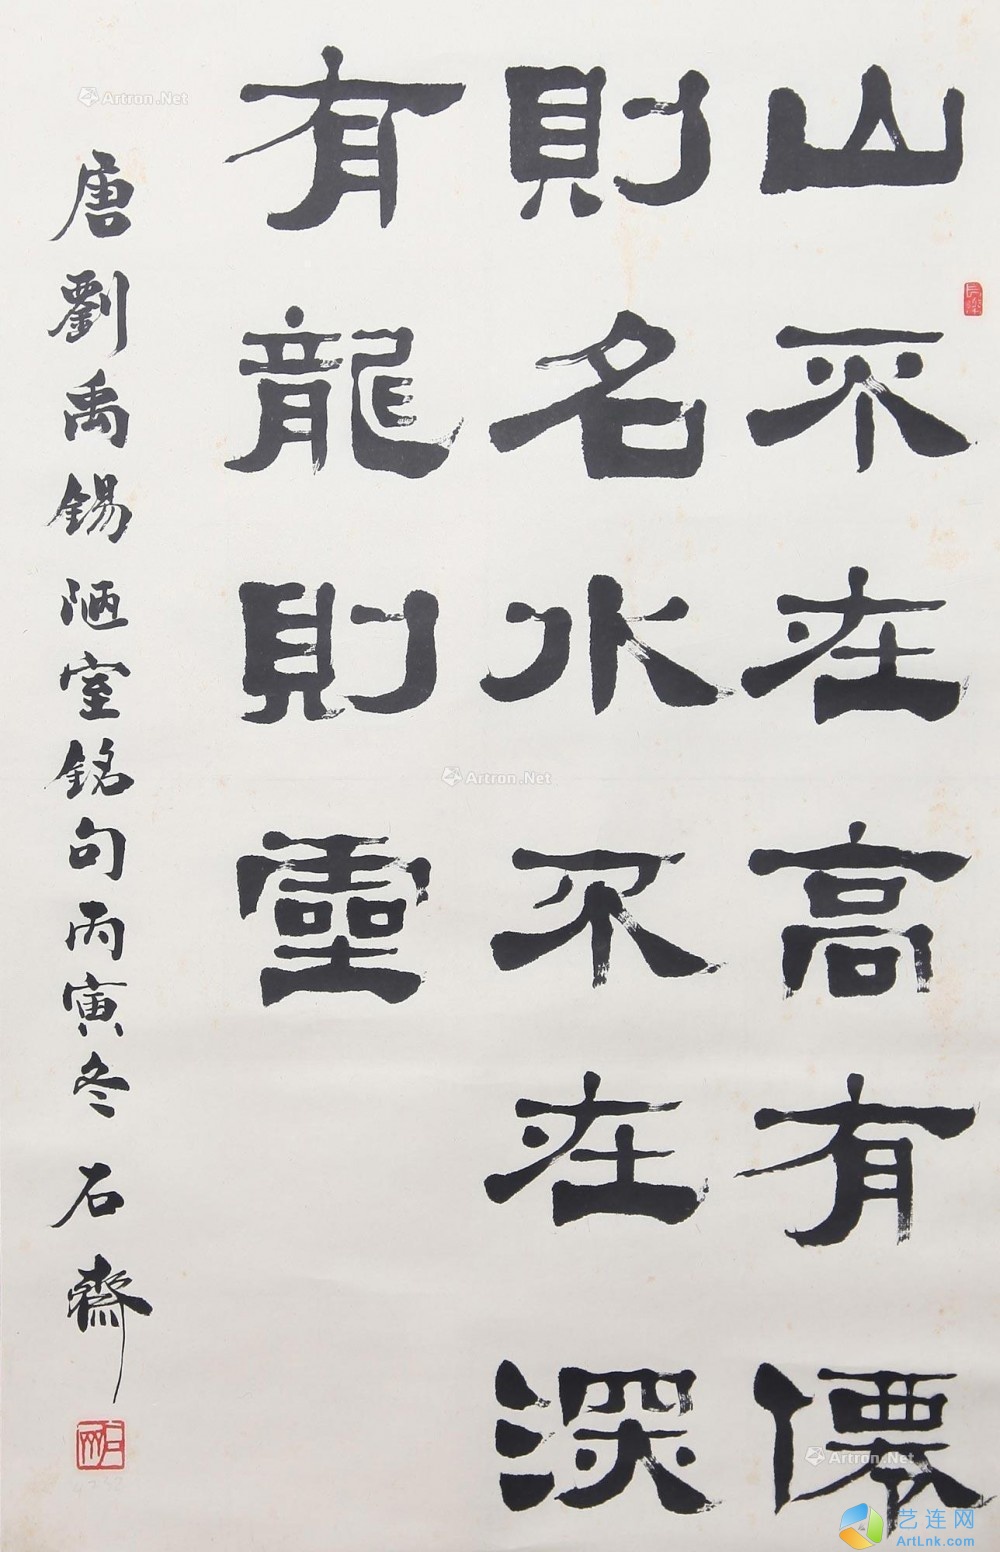 山不在高有僊
則名水不在深
有龍則靈
唐劉禹錫陋室銘句丙寅冬石齋
Artron.Net
Artron.Net
Artron.Net
艺连网
ArtLnk.com